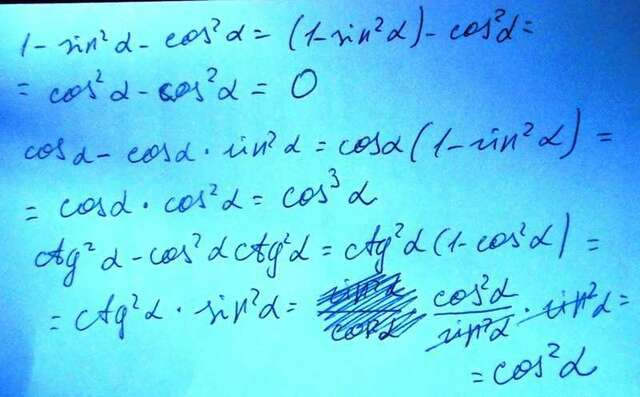 1 - sin²α - cos²α = (1 - sin²α) - cos²α =
= cos²α - cos²α = 0
cosα - cosα · sin²α = cosα (1 - sin²α) =
= cosα · cos²α = cos³α
ctg²α - cos²α ctg²α = ctg²α (1 - cos²α) =
= ctg²α · sin²α = cos²α/sin²α · sin²α =
= cos²α